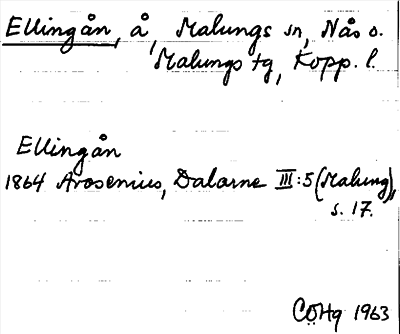 Ellingån, å, Malungs sn, Nås o.
Malungs tg, Kopp. l.
Ellingån
1864 Arosenius, Dalarne III:5 (Malung),
s. 17.
CÖHg 1963